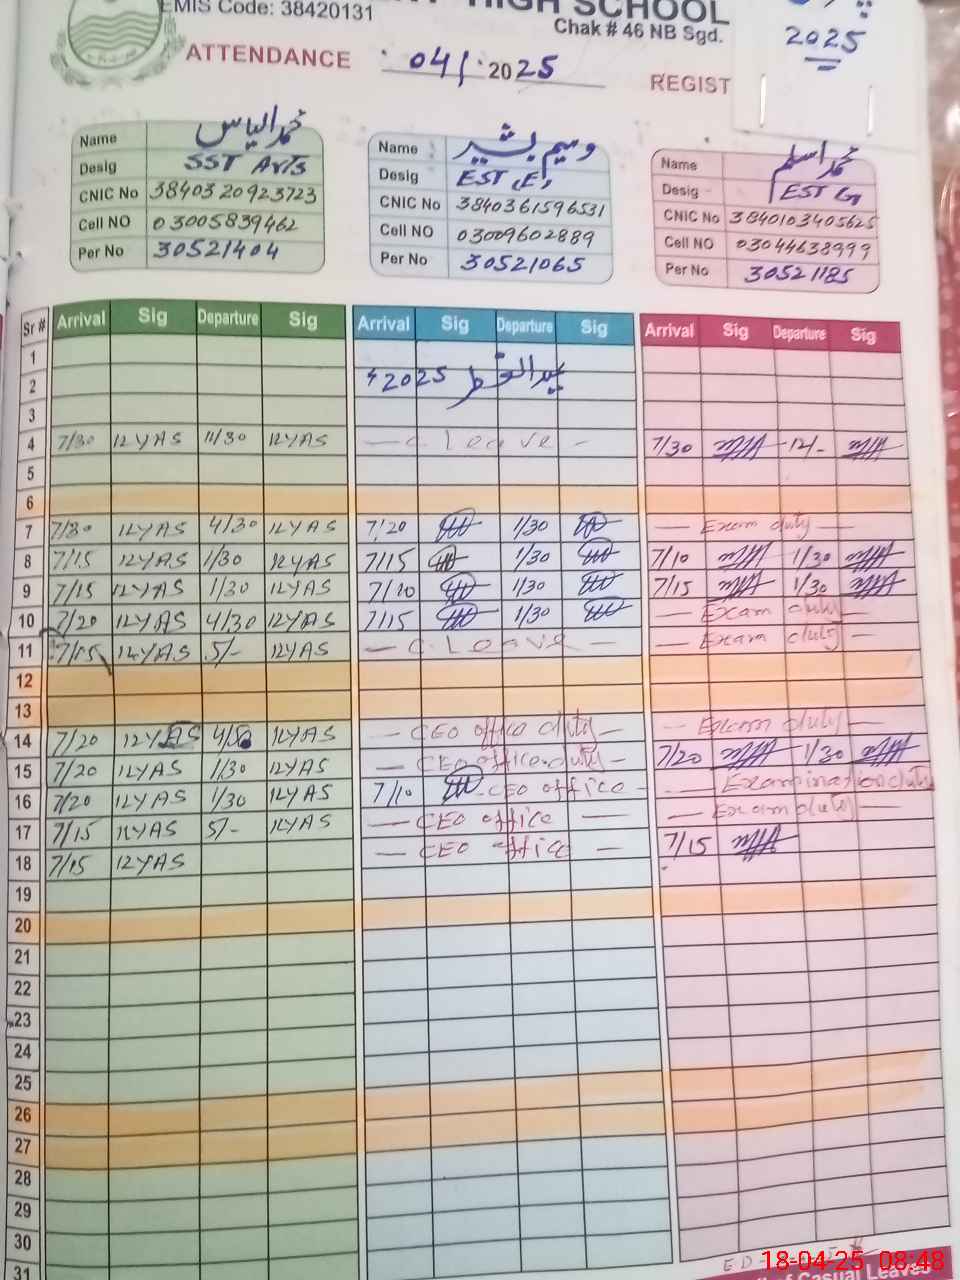 EMIS Code: 38420131
HIGH SCHOOL
Chak # 46 NB Sgd.
2025
ATTENDANCE 04/ 2025 REGIST
Name محمد الیاس
Desig SST Ar/s
CNIC No 38403 20923723
Cell NO 03005839462
Per No 30521404
Name وسیم بشیر
Desig EST (E)
CNIC No 3840361596531
Cell NO 03009602889
Per No 30521065
Name محمد اسلم
Desig EST G
CNIC No 3840103405625
Cell NO 03044638999
Per No 30521185
Sr # Arrival Sig Departure Sig Arrival Sig Departure Sig Arrival Sig Departure Sig
1
2 عید الفطر 2025ء
3
4 7/30 ILYAS 11/30 ILYAS — C Leave — 7/30 12/-
5
6
7 7/30 ILYAS 4/30 ILYAS 7/20 1/30 — Exam duty —
8 7/15 ILYAS 1/30 ILYAS 7/15 1/30 7/10 1/30
9 7/15 ILYAS 1/30 ILYAS 7/10 1/30 7/15 1/30
10 7/20 ILYAS 4/30 ILYAS 7/15 1/30 — Exam duty —
11 7/15 ILYAS 5/- ILYAS — C. Leave — — Exam duty —
12
13
14 7/20 ILYAS ILYAS — CEO office duty — — Exam duty —
15 7/20 ILYAS 1/30 ILYAS — CEO office duty — 7/20 1/30
16 7/20 ILYAS 1/30 ILYAS 7/10 CEO office — — Examination duty
17 7/15 ILYAS 5/- ILYAS — CEO office — — Exam duty —
18 7/15 ILYAS — CEO office — 7/15
19
20
21
22
23
24
25
26
27
28
29
30
31
18-04-25 08:48
Casual Leaves